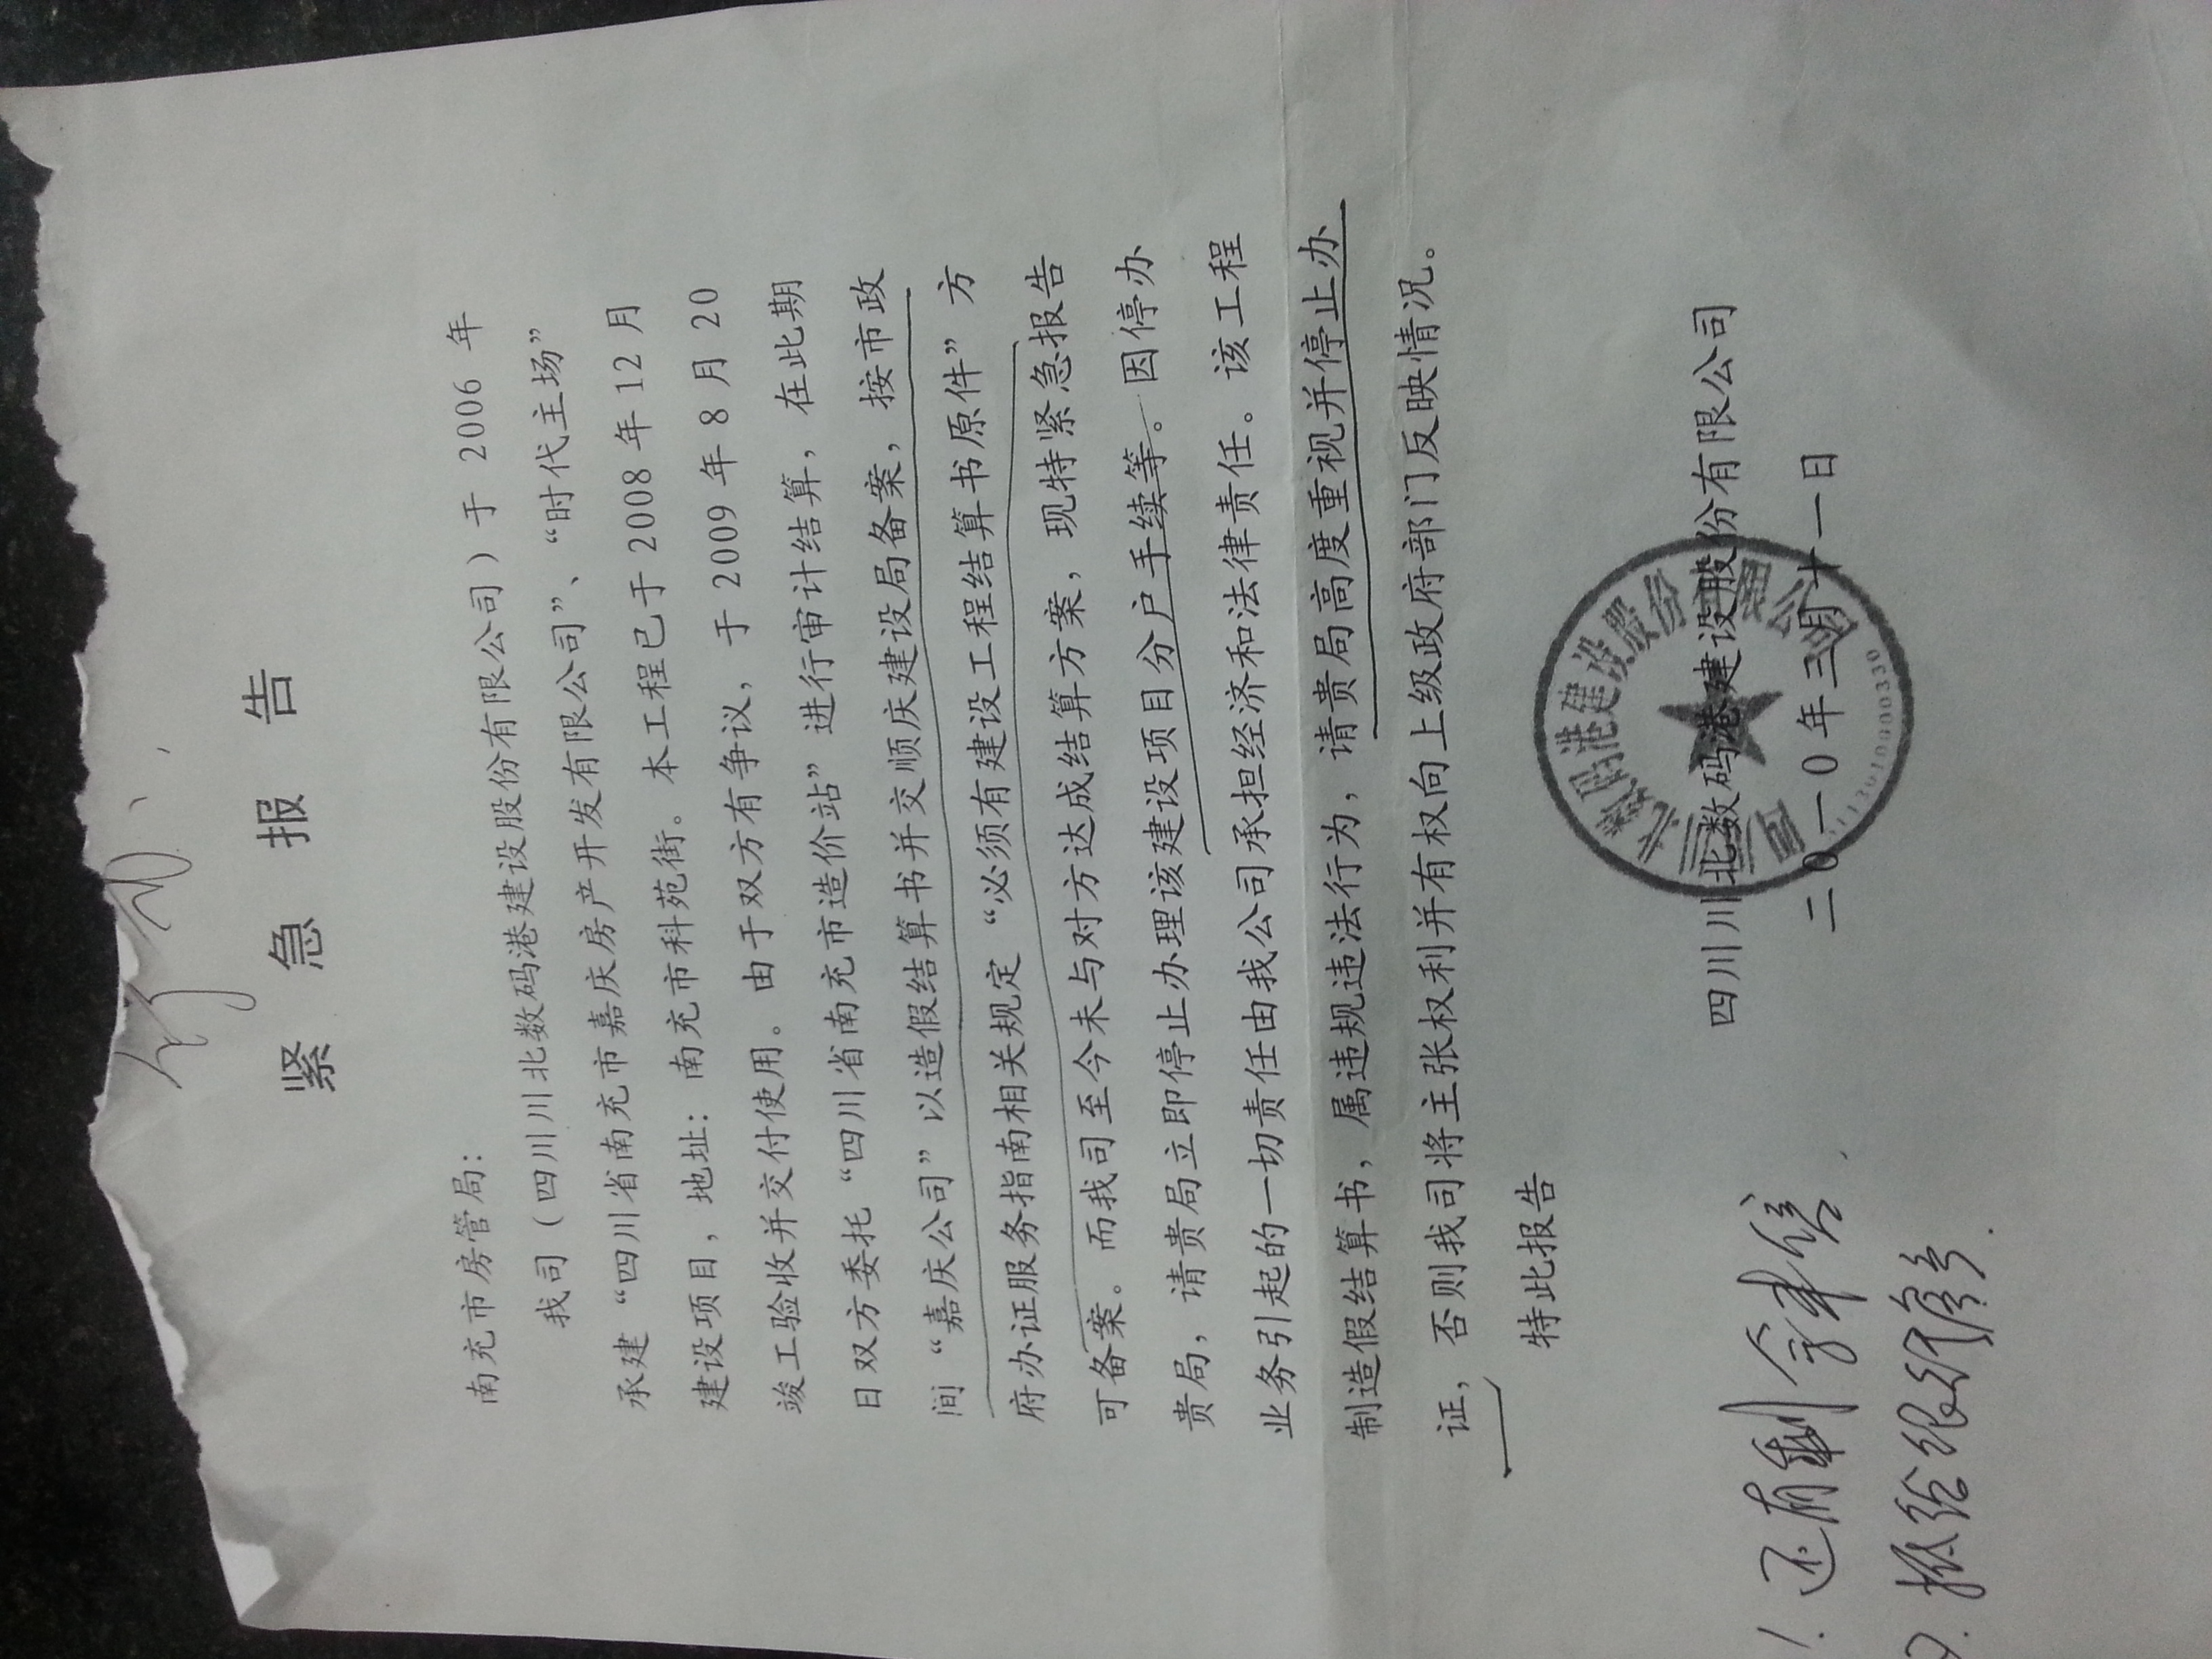 紧急报告
南充市房管局：
我司（四川川北数码港建设股份有限公司）于 2006 年
承建“四川省南充市嘉庆房产开发有限公司”、“时代主场”
建设项目，地址：南充市科苑街。本工程已于 2008 年 12 月
竣工验收并交付使用。由于双方有争议，于 2009 年 8 月 20
日双方委托“四川省南充市造价站”进行审计结算，在此期
间“嘉庆公司”以造假结算书并交顺庆建设局备案，按市政
府办证服务指南相关规定“必须有建设工程结算书原件”方
可备案。而我司至今未与对方达成结算方案，现特紧急报告
贵局，请贵局立即停止办理该建设项目分户手续等。因停办
业务引起的一切责任由我公司承担经济和法律责任。该工程
制造假结算书，属违规违法行为，请贵局高度重视并停止办
证，否则我司将主张权利并有权向上级政府部门反映情况。
特此报告
四川川北数码港建设股份有限公司
二0一0年三月十一日
1. 还有
2.